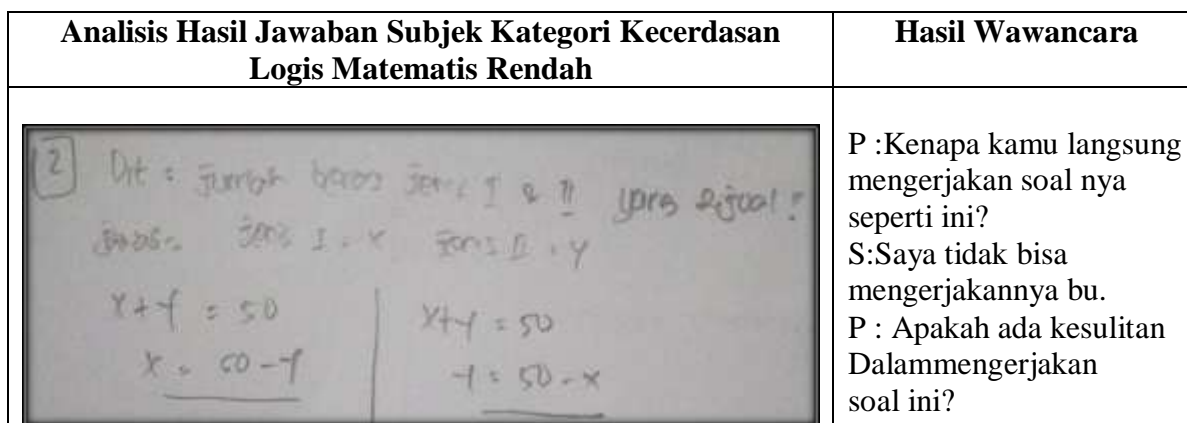 Analisis Hasil Jawaban Subjek Kategori Kecerdasan
Logis Matematis Rendah
Hasil Wawancara
2 Dit : Jumlah jenis I & II yang dijual ?
jenis I = x jenis II = y
x + y = 50
x = 50 - y
x + y = 50
y = 50 - x
P :Kenapa kamu langsung
mengerjakan soal nya
seperti ini?
S:Saya tidak bisa
mengerjakannya bu.
P : Apakah ada kesulitan
Dalammengerjakan
soal ini?